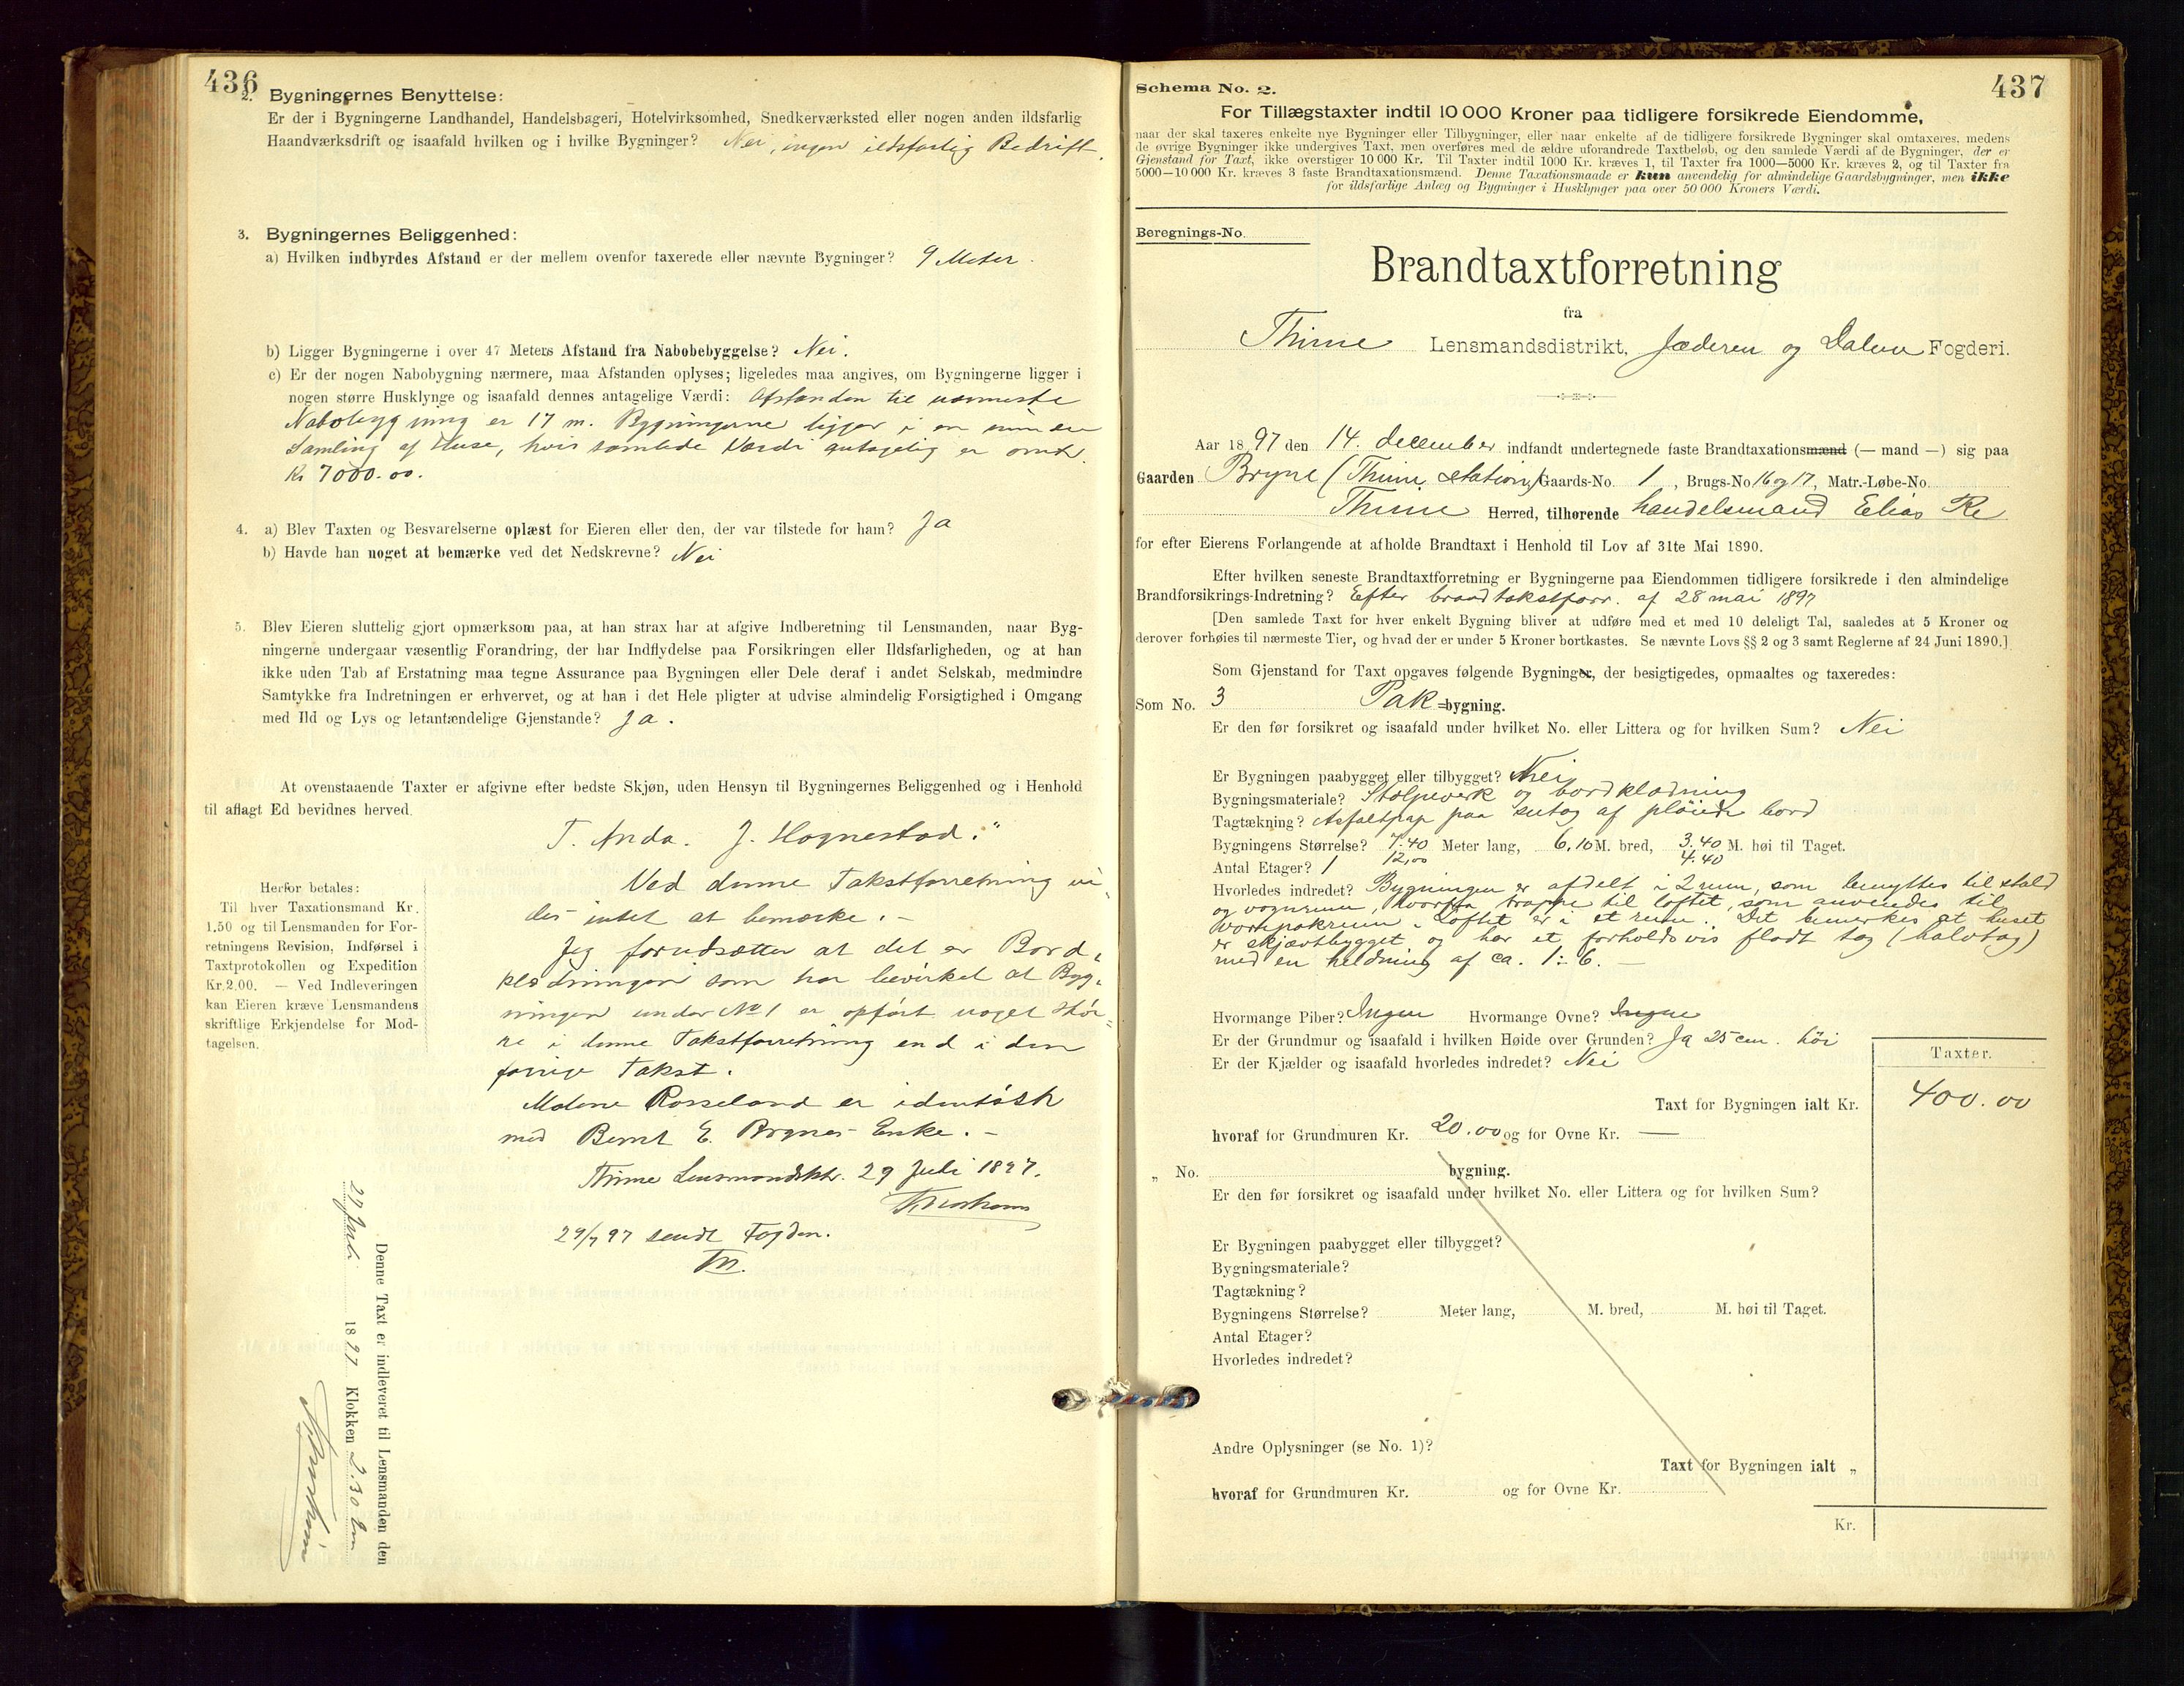 436
2. Bygningernes Benyttelse:
Er der i Bygningerne Landhandel, Handelsbageri, Hotelvirksomhed, Snedkerværksted eller nogen anden ildsfarlig
Haandværksdrift og isaafald hvilken og i hvilke Bygninger? Nei, ingen ildsfarlig Bedrift.
3. Bygningernes Beliggenhed:
a) Hvilken indbyrdes Afstand er der mellem ovenfor taxerede eller nævnte Bygninger? 9 Meter.
b) Ligger Bygningerne i over 47 Meters Afstand fra Nabobebyggelse? Nei.
c) Er der nogen Nabobygning nærmere, maa Afstanden oplyses; ligeledes maa angives, om Bygningerne ligger i
nogen større Husklynge og isaafald dennes antagelige Værdi: Afstanden til nærmeste
Nabobygning er 17 m. Bygningerne ligger i en mindre
Samling af Huse, hvis samlede Værdi antagelig er omtr.
Kr 7000.00.
4. a) Blev Taxten og Besvarelserne oplæst for Eieren eller den, der var tilstede for ham? Ja
b) Havde han noget at bemærke ved det Nedskrevne? Nei
5. Blev Eieren sluttelig gjort opmærksom paa, at han strax har at afgive Indberetning til Lensmanden, naar Byg-
ningerne undergaar væsentlig Forandring, der har Indflydelse paa Forsikringen eller Ildsfarligheden, og at han
ikke uden Tab af Erstatning maa tegne Assurance paa Bygningen eller Dele deraf i andet Selskab, medmindre
Samtykke fra Indretningen er erhvervet, og at han i det Hele pligter at udvise almindelig Forsigtighed i Omgang
med Ild og Lys og letantændelige Gjenstande? Ja.
At ovenstaaende Taxter er afgivne efter bedste Skjøn, uden Hensyn til Bygningernes Beliggenhed og i Henhold
til aflagt Ed bevidnes herved.
T. Anda. J. Hognestad."
Ved denne Takstforretning vi-
des intet at bemærke. -
Jeg forudsætter at det er Bord-
klædningen som har bevirket at Byg-
ningen under No 1 er opført noget stør-
re i denne Takstforretning end i den
forrige Takst.
Malene Rosseland er identisk
med Bernt E. Brynes Enke. -
Thime Lensmandsktr. 29 Juli 1897.
29/7 97 sendt Fogden.
Herfor betales:
Til hver Taxationsmand Kr.
1,50 og til Lensmanden for For-
retningens Revision, Indførsel i
Taxtprotokollen og Expedition
Kr. 2,00. — Ved Indleveringen
kan Eieren kræve Lensmandens
skriftlige Erkjendelse for Mod-
tagelsen.
Denne Taxt er indleveret til Lensmanden den
29 Juli 1897 Klokken 2.30 Em
437
Schema No. 2.
For Tillægstaxter indtil 10 000 Kroner paa tidligere forsikrede Eiendomme,
naar der skal taxeres enkelte nye Bygninger eller Tilbygninger, eller naar enkelte af de tidligere forsikrede Bygninger skal omtaxeres, medens
de øvrige Bygninger ikke undergives Taxt, men overføres med de ældre uforandrede Taxtbeløb, og den samlede Værdi af de Bygninger, der er
Gjenstand for Taxt, ikke overstiger 10 000 Kr. Til Taxter indtil 1000 Kr. kræves 1, til Taxter fra 1000—5000 Kr. kræves 2, og til Taxter fra
5000—10 000 Kr. kræves 3 faste Brandtaxationsmænd. Denne Taxationsmaade er kun anvendelig for almindelige Gaardsbygninger, men ikke
for ildsfarlige Anlæg og Bygninger i Husklynger paa over 50 000 Kroners Værdi.
Beregnings-No.
Brandtaxtforretning
fra
Thime Lensmandsdistrikt, Jæderen og Dalene Fogderi.
Aar 1897 den 14. december indfandt undertegnede faste Brandtaxationsmænd (— mand —) sig paa
Gaarden Bryne (Thime station) Gaards-No. 1, Brugs-No 16 og 17, Matr.-Løbe-No.
Thime Herred, tilhørende handelsmand Elias Re
for efter Eierens Forlangende at afholde Brandtaxt i Henhold til Lov af 31te Mai 1890.
Efter hvilken seneste Brandtaxtforretning er Bygningerne paa Eiendommen tidligere forsikrede i den almindelige
Brandforsikrings-Indretning? Efter brandtakstforr. af 28 mai 1897
[Den samlede Taxt for hver enkelt Bygning bliver at udføre med et med 10 deleligt Tal, saaledes at 5 Kroner og
derover forhøies til nærmeste Tier, og hvad der er under 5 Kroner bortkastes. Se nævnte Lovs §§ 2 og 3 samt Reglerne af 24 Juni 1890.]
Som Gjenstand for Taxt opgaves følgende Bygninger, der besigtigedes, opmaaltes og taxeredes:
Som No. 3 Pak=bygning.
Er den før forsikret og isaafald under hvilket No. eller Littera og for hvilken Sum? Nei
Er Bygningen paabygget eller tilbygget? Nei
Bygningsmateriale? Stolpeverk og bordklædning
Tagtækning? Asfaltpap paa sutag af pløiede bord
Bygningens Størrelse? 7.40 Meter lang, 6,10 M. bred, 3.40 M. høi til Taget.
Antal Etager? 1 12,00 4.40
Hvorledes indredet? Bygningen er afdelt i 2 rum, som benyttes til stald
og vognrum, hvorfra trappe til loftet, som anvendes til
pakrum. Loftet er i et rum. Det bemerkes at huset
er skjævtbygget og har et forholdsvis fladt tag (halvtag)
med en heldning af ca. 1:6. —
Hvormange Piber? Ingen Hvormange Ovne? Ingen
Er der Grundmur og isaafald i hvilken Høide over Grunden? Ja 25 cm. høi
Er der Kjælder og isaafald hvorledes indredet? Nei
Taxter.
Taxt for Bygningen ialt Kr. 400.00
hvoraf for Grundmuren Kr. 20.00 og for Ovne Kr. —
„ No. bygning.
Er den før forsikret og isaafald under hvilket No. eller Littera og for hvilken Sum?
Er Bygningen paabygget eller tilbygget?
Bygningsmateriale?
Tagtækning?
Bygningens Størrelse? Meter lang, M. bred, M. høi til Taget.
Antal Etager?
Hvorledes indredet?
Andre Oplysninger (se No. 1)?
Taxt for Bygningen ialt „
hvoraf for Grundmuren Kr. og for Ovne Kr.
Kr.